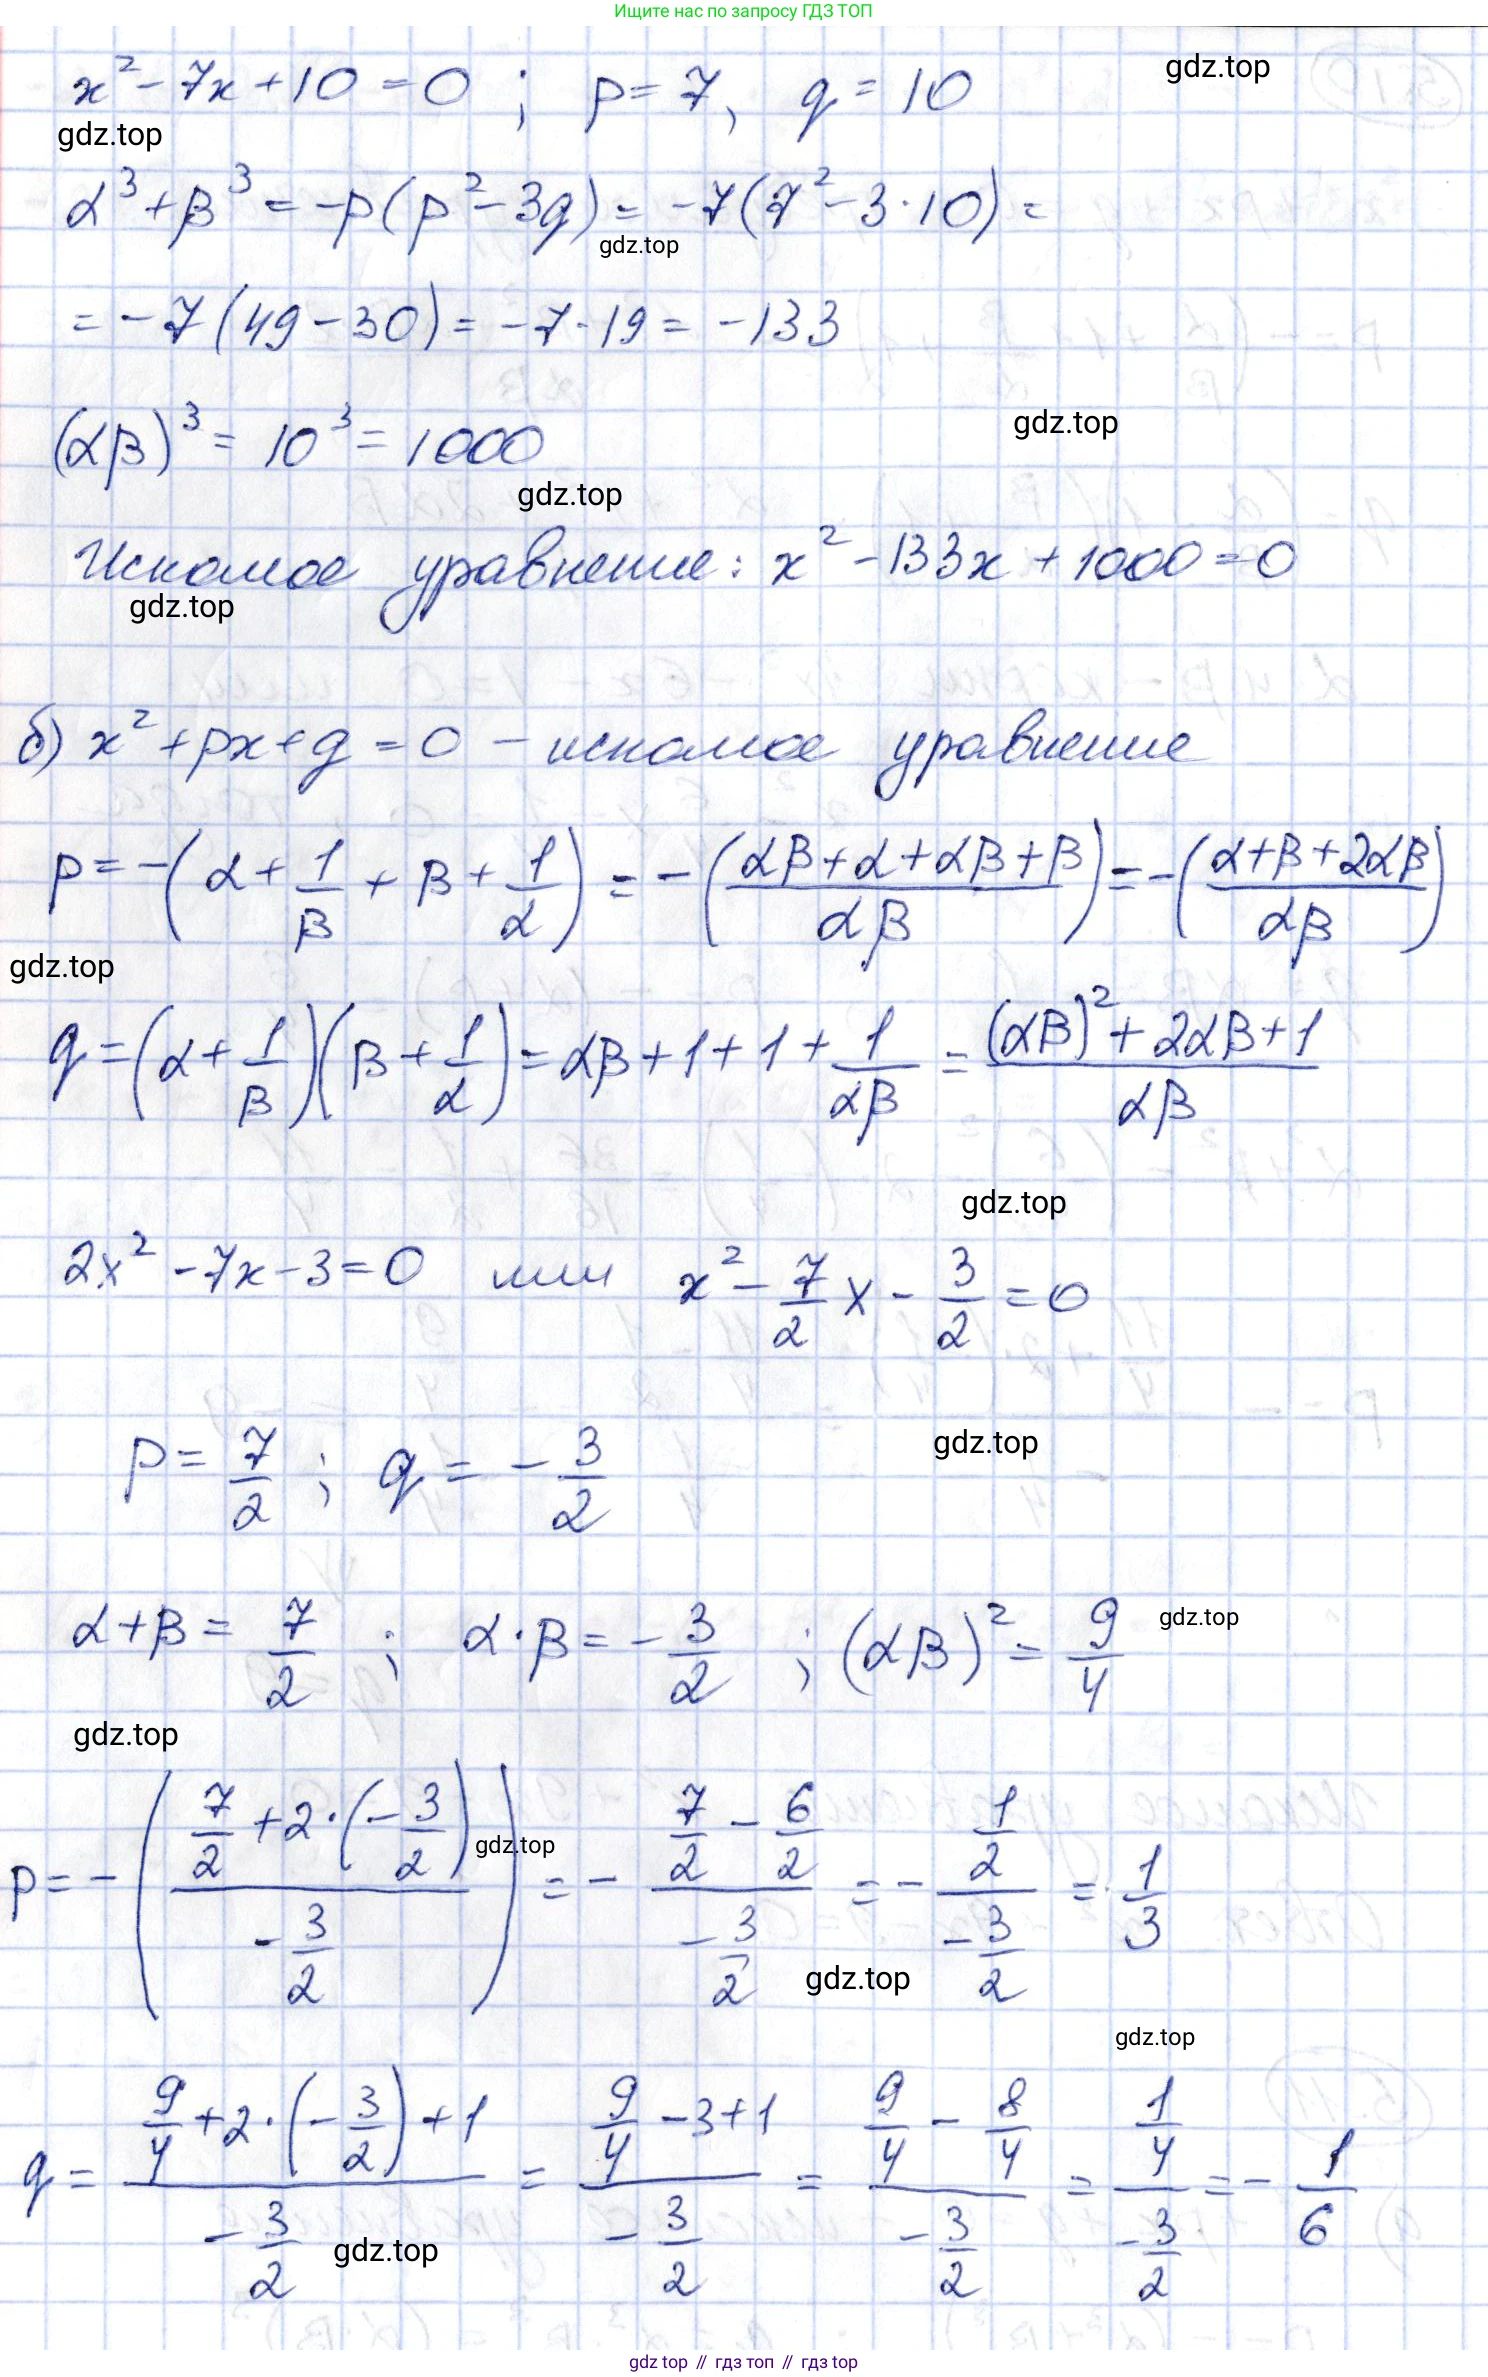 Ищите нас по запросу ГДЗ ТОП
x² - 7x + 10 = 0 ; p = 7, q = 10
gdz.top
gdz.top
α³ + β³ = -p(p² - 3q) = -7(7² - 3·10) =
gdz.top
= -7(49 - 30) = -7·19 = -133
(αβ)³ = 10³ = 1000
gdz.top
gdz.top
Искомое уравнение: x² - 133x + 1000 = 0
gdz.top
б) x² + px + q = 0 – искомое уравнение
p = -(α + 1/β + β + 1/α) = -((αβ + α + αβ + β)/(αβ)) = -((α + β + 2αβ)/(αβ))
gdz.top
q = (α + 1/β)(β + 1/α) = αβ + 1 + 1 + 1/(αβ) = ((αβ)² + 2αβ + 1)/(αβ)
gdz.top
2x² - 7x - 3 = 0 или x² - 7/2 x - 3/2 = 0
p = 7/2 ; q = -3/2
gdz.top
α + β = 7/2 ; α·β = -3/2 ; (αβ)² = 9/4
gdz.top
gdz.top
p = -((7/2 + 2·(-3/2))/(-3/2)) = -(7/2 - 6/2)/(-3/2) = -(1/2)/(-3/2) = 1/3
gdz.top
gdz.top
gdz.top
q = (9/4 + 2·(-3/2) + 1)/(-3/2) = (9/4 - 3 + 1)/(-3/2) = (9/4 - 8/4)/(-3/2) = (1/4)/(-3/2) = -1/6
gdz.top
gdz top // гдз топ // гдз top